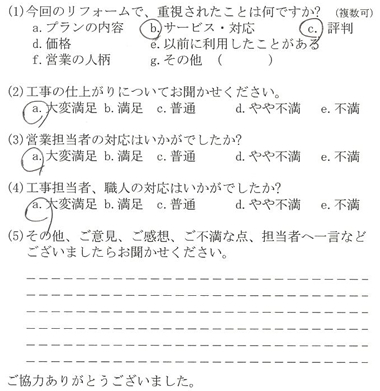 (1)今回のリフォームで、重視されたことは何ですか? (複数可)
a.プランの内容 b.サービス・対応 c.評判
d.価格 e.以前に利用したことがある
f.営業の人柄 g.その他 ( )
(2)工事の仕上がりについてお聞かせください。
a.大変満足 b.満足 c.普通 d.やや不満 e.不満
(3)営業担当者の対応はいかがでしたか?
a.大変満足 b.満足 c.普通 d.やや不満 e.不満
(4)工事担当者、職人の対応はいかがでしたか?
a.大変満足 b.満足 c.普通 d.やや不満 e.不満
(5)その他、ご意見、ご感想、ご不満な点、担当者へ一言など
ございましたらお聞かせください。
ご協力ありがとうございました。